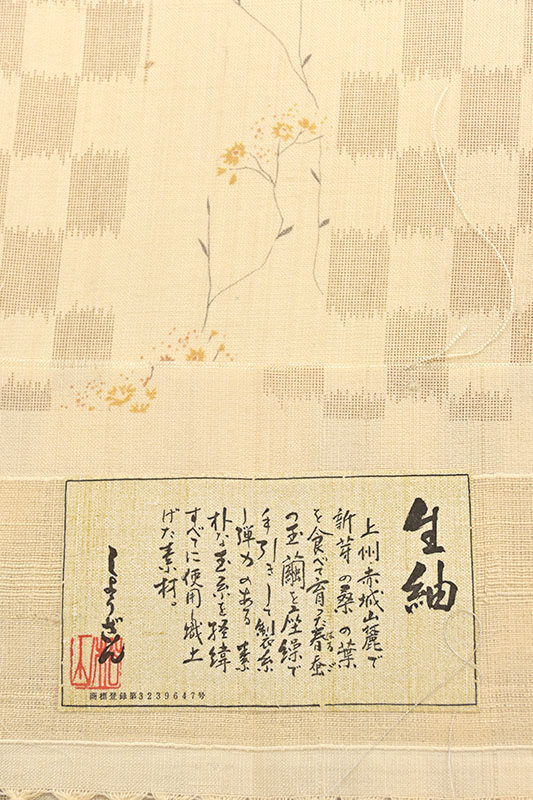 生紬
上州赤城山麓で
新芽の桑の葉
を食べて育った春蚕
はるご
の玉繭を座繰で
手引きして製糸
し弾力のある素
朴な玉糸を経緯
すべてに使用織上
げた素材。
しょうざん
商標登録第3239647号